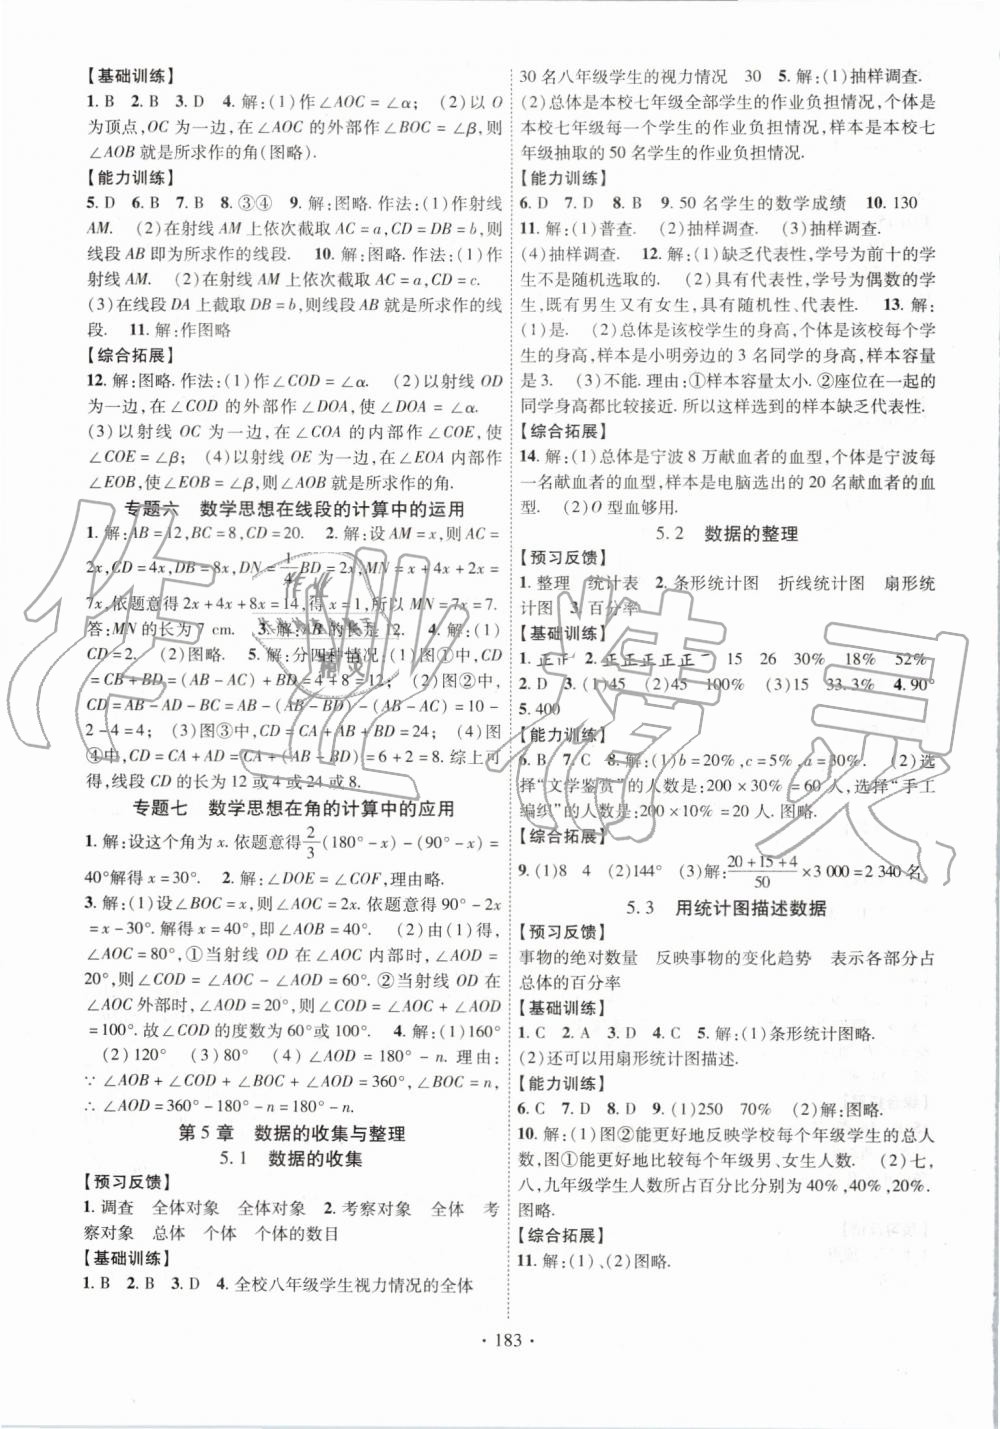 【基础训练】
1. B  2. B  3. D  4. 解:(1)作∠AOC=∠α;  (2)以 O
为顶点,OC 为一边,在∠AOC的外部作∠BOC=∠β,则
∠AOB 就是所求作的角(图略).
【能力训练】
5. D  6. B  7. B  8. ③④  9. 解:图略. 作法:(1)作射线
AM.  (2)在射线 AM 上依次截取 AC=a,CD=b,DB=b,则
线段 AB 即为所求作的线段.  10. 解:图略. 作法:(1)作
射线 AM.  (2)在射线 AM 上依次截取 AC=a,CD=c.
(3)在线段 DA 上截取 DB=b,则线段 AB 就是所求作的线
段.  11. 解:作图略
【综合拓展】
12. 解:图略. 作法:(1)作∠COD=∠α.  (2)以射线 OD
为一边,在∠COD 的外部作∠DOA,使∠DOA=∠α.
(3)以射线 OC 为一边,在∠COA 的内部作∠COE,使
∠COE=∠β;  (4)以射线 OE 为一边,在∠EOA 内部作
∠EOF,使∠EOF=∠β,则∠AOF 就是所求作的角.
专题六  数学思想在线段的计算中的运用
1. 解:AB=12,BC=8,CD=20.  2. 解:设 AM=x,则 AC=
2x,CD=4x,DB=8x,DN=1/4BD=2x,MN=x+4x+2x=
7x,依题意得 2x+4x+8x=14,得 x=1,所以 MN=7x=7.
答:MN 的长为 7 cm.  3. 解:AB的长是 12.  4. 解:(1)
CD=2.  (2)图略.  5. 解:分四种情况:(1)图①中,
CD=CB+BD=(AB-AC)+BD=4+8=12;  (2)图②中,
CD=AB-AD-BC=AB-(AB-BD)-(AB-AC)=10-
2-4=4;  (3)图③中,CD=CA+AB+BD=24;  (4)图
④中,CD=CA+AD=CA+(AB-BD)=6+2=8. 综上可
得,线段 CD 的长为 12 或 4 或 24 或 8.
专题七  数学思想在角的计算中的应用
1. 解:设这个角为 x. 依题意得2/3(180°-x)-(90°-x)=
40°解得 x=30°.  2. 解:∠DOE=∠COF,理由略.
3. 解:(1)设∠BOC=x,则∠AOC=2x. 依题意得 90°-2x
=x-30°. 解得 x=40°,即∠AOB=40°.  (2)由(1)得,
∠AOC=80°,①当射线 OD 在∠AOC 内部时,∠AOD=
20°,则∠COD=∠AOC-∠AOD=60°. ②当射线 OD 在
∠AOC 外部时,∠AOD=20°,则∠COD=∠AOC+∠AOD
=100°. 故∠COD 的度数为60°或100°.  4. 解:(1)160°
(2)120°  (3)80°  (4)∠AOD=180°-n. 理由:
∵∠AOB+∠COD+∠BOC+∠AOD=360°,∠BOC=n,
∴∠AOD=360°-180°-n=180°-n.
第 5 章  数据的收集与整理
5.1  数据的收集
【预习反馈】
1. 调查  全体对象  全体对象  2. 考察对象  全体  考
察对象  总体  个体  个体的数目
【基础训练】
1. B  2. B  3. D  4. 全校八年级学生视力情况的全体
30 名八年级学生的视力情况  30  5. 解:(1)抽样调查.
(2)总体是本校七年级全部学生的作业负担情况,个体是
本校七年级每一个学生的作业负担情况,样本是本校七
年级抽取的 50 名学生的作业负担情况.
【能力训练】
6. D  7. D  8. B  9. 50 名学生的数学成绩  10. 130
11. 解:(1)普查.  (2)抽样调查.  (3)抽样调查.
(4)抽样调查.  12. 解:(1)缺乏代表性,学号为前十的学
生不是随机选取的.  (2)具有代表性,学号为偶数的学
生,既有男生又有女生,具有随机性、代表性.  13. 解:
(1)是.  (2)总体是该校学生的身高,个体是该校每个学
生的身高,样本是小明旁边的 3 名同学的身高,样本容量
是 3.  (3)不能. 理由:①样本容量太小. ②座位在一起的
同学身高都比较接近. 所以这样选到的样本缺乏代表性.
【综合拓展】
14. 解:(1)总体是宁波 8 万献血者的血型,个体是宁波每
一名献血者的血型,样本是电脑选出的 20 名献血者的血
型.  (2)O 型血够用.
5.2  数据的整理
【预习反馈】
1. 整理  统计表  2. 条形统计图  折线统计图  扇形统
计图  3. 百分率
【基础训练】
1. 正正  2. 正正正正正  15  26  30%  18%  52%
2. D  3. (1)45  (2)45  100%  (3)15  33.3%  4. 90°
5. 400
【能力训练】
6. B  7. C  8. 解:(1)b=20%,c=5%,a=30%.  (2)选
择“文学鉴赏”的人数是:200×30%=60 人,选择“手工
编织”的人数是:200×10%=20人. 图略.
【综合拓展】
9. (1)8  4  (2)144°  (3)解:(20+15+4)/50×3 000=2 340 名
5.3  用统计图描述数据
【预习反馈】
事物的绝对数量  反映事物的变化趋势  表示各部分占
总体的百分率
【基础训练】
1. C  2. A  3. D  4. C  5. 解:(1)条形统计图略.
(2)还可以用扇形统计图描述.
【能力训练】
6. C  7. D  8. D  9. (1)250  70%  (2)解:图略.
10. 解:(1)图②能更好地反映学校每个年级学生的总人
数,图①能更好地反映每个年级男、女生人数.  (2)七、
八、九年级学生人数所占百分比分别为 40%,40%,20%.
图略.
【综合拓展】
11. 解:(1)、(2)图略.
· 183 ·
作业精灵